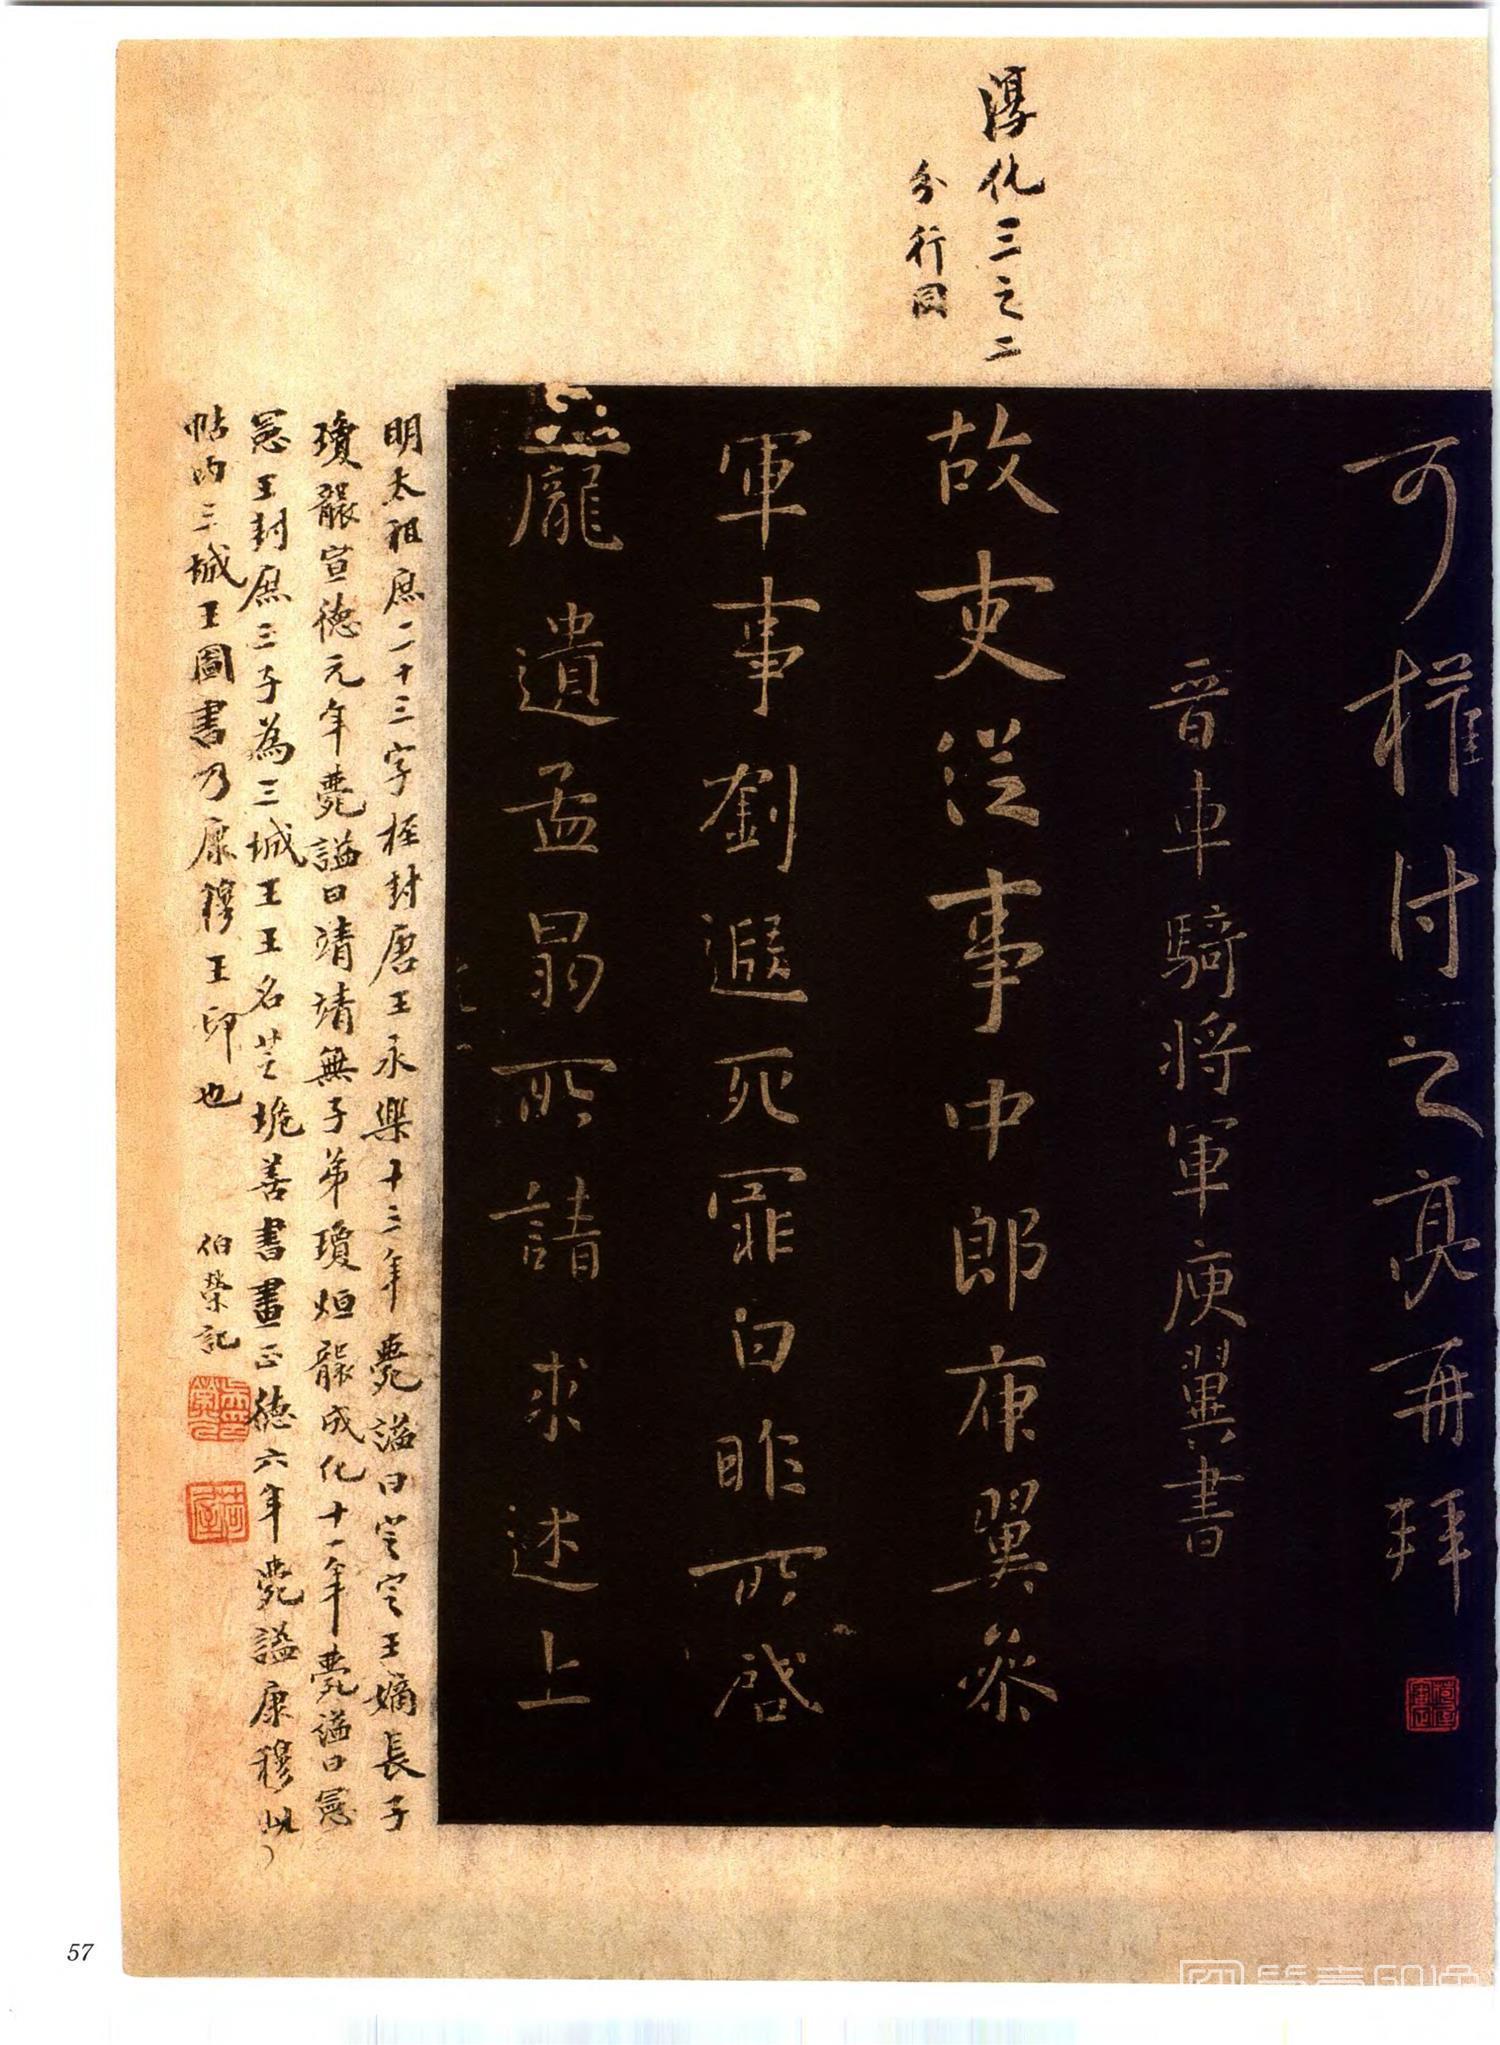 淳化三之二
分行同
可權付之亮再拜
晉車騎將軍庾翼書
故吏從事中郎庾翼參
軍事劉遐死罪白昨所啓
龐遺孟昜所請求述上
明太祖庶二十三字桱封唐王永樂十三年薨謚曰定王嫡長子
瓊龏宣德元年薨謚曰靖靖無子弟瓊烜龏成化十一年薨謚曰憲
憲王封庶三子為三城王王名芝垝善書畫正德六年薨謚康穆此
帖內三城王圖書乃康穆王印也
伯榮記
57